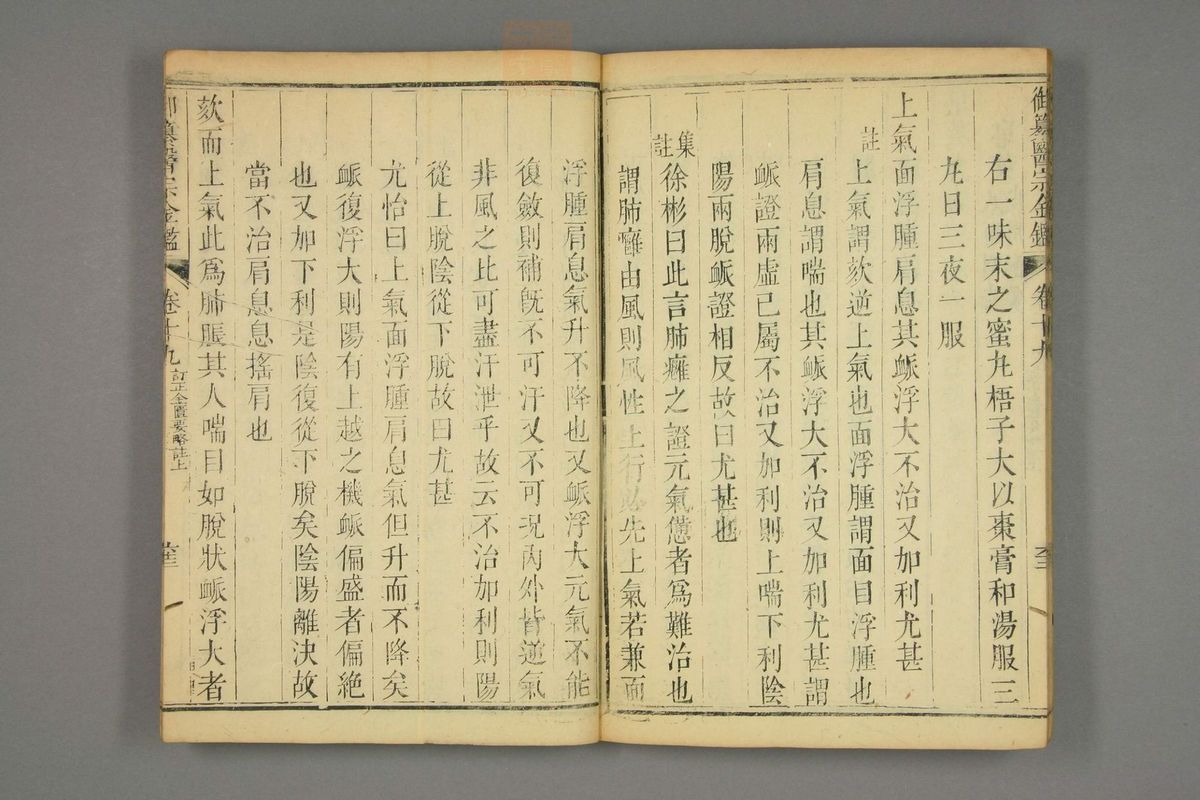 御纂醫宗金鑑 卷十九
右一味末之蜜丸梧子大以棗膏和湯服三
丸日三夜一服
上氣面浮腫肩息其脈浮大不治又加利尤甚
註上氣謂欬逆上氣也面浮腫謂面目浮腫也
肩息謂喘也其脈浮大不治又加利尤甚謂
脈證兩虛已屬不治又加利則上喘下利陰
陽兩脫脈證相反故曰尤甚也
集註徐彬曰此言肺癰之證元氣憊者爲難治也
謂肺癰由風則風性上行必先上氣若兼面
浮腫肩息氣升不降也又脈浮大元氣不能
復斂則補旣不可汗又不可况內外皆逆氣
非風之比可盡汗泄乎故云不治加利則陽
從上脫陰從下脫故曰尤甚
尤怡曰上氣面浮腫肩息氣但升而不降矣
脈復浮大則陽有上越之機脈偏盛者偏絕
也又加下利是陰復從下脫矣陰陽離決故
當不治肩息息搖肩也
欬而上氣此爲肺脹其人喘目如脫狀脈浮大者
御纂醫宗金鑑 卷十九 訂正金匱要略註上